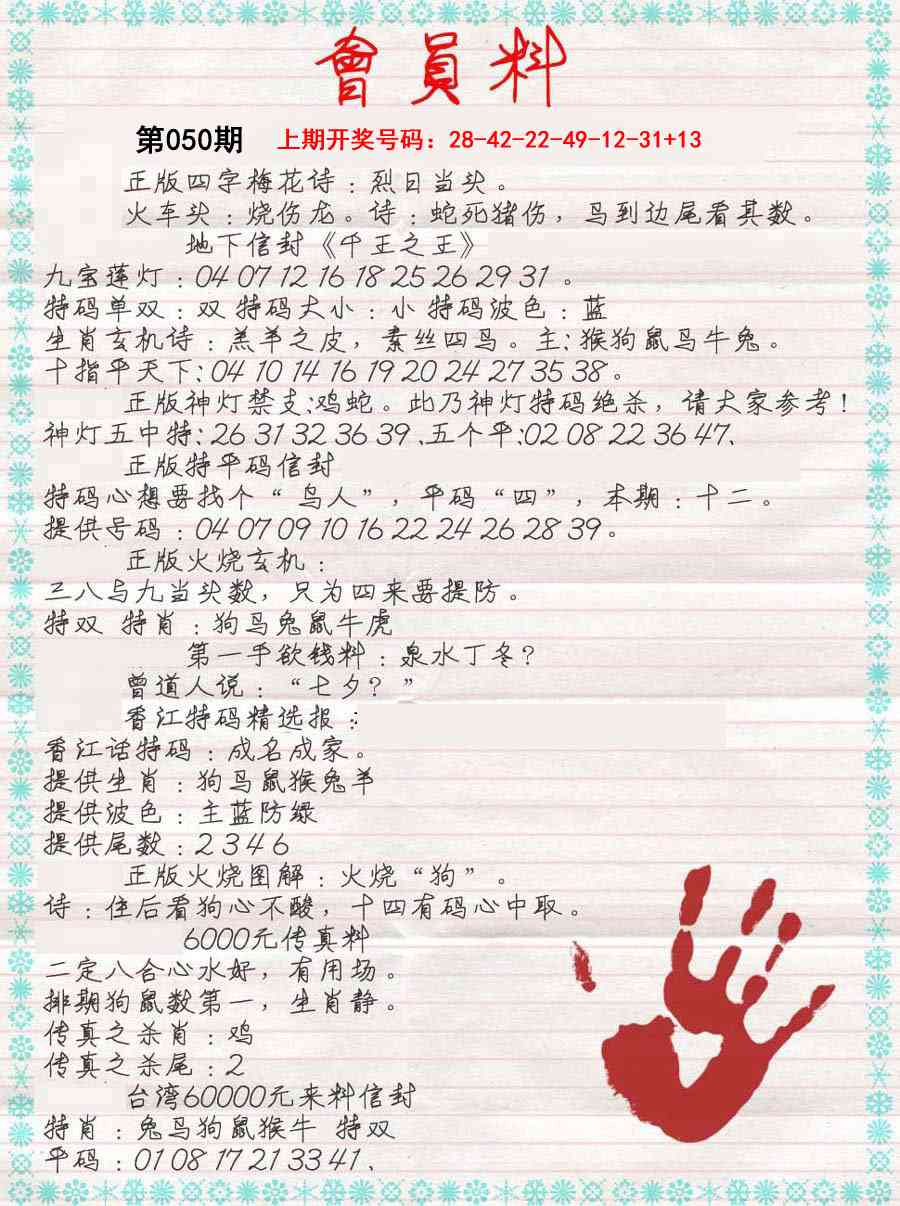 會員料
第050期 上期开奖号码：28-42-22-49-12-31+13
正版四字梅花诗：烈日当头。
火车头：烧伤龙。诗：蛇死猪伤，鸟到边尾看其数。
地下信封《千王之王》
九宝莲灯：04 07 12 16 18 25 26 29 31 。
特码单双：双 特码大小：小 特码波色：蓝
生肖玄机诗：羔羊之皮，素丝四鸟。主：猴狗鼠鸟牛兔。
十指平天下：04 10 14 16 19 20 24 27 35 38 。
正版神灯禁支：鸡蛇。此乃神灯特码绝杀，请大家参考！
神灯五中特：26 31 32 36 39 、五个平：02 08 22 36 47、
正版特平码信封
特码心想要找个“鸟人”，平码“四”，本期：十二。
提供号码：04 07 09 10 16 22 24 26 28 39 。
正版火烧玄机：
三八与九当头数，只为四来要提防。
特双 特肖：狗鸟兔鼠牛虎
第一手欲钱料：泉水丁冬？
曾道人说：“七夕？”
香江特码精选报：
香江话特码：成名成家。
提供生肖：狗鸟鼠猴兔羊
提供波色：主蓝防绿
提供尾数：2 3 4 6
正版火烧图解：火烧“狗”。
诗：住后看狗心不酸，十四有码心中取。
6000元传真料
二定八合心水好，有用场。
排期狗鼠数第一，生肖静。
传真之杀肖：鸡
传真之杀尾：2
台湾60000元来料信封
特肖：兔鸟狗鼠猴牛 特双
平码：01 08 17 21 33 41 、